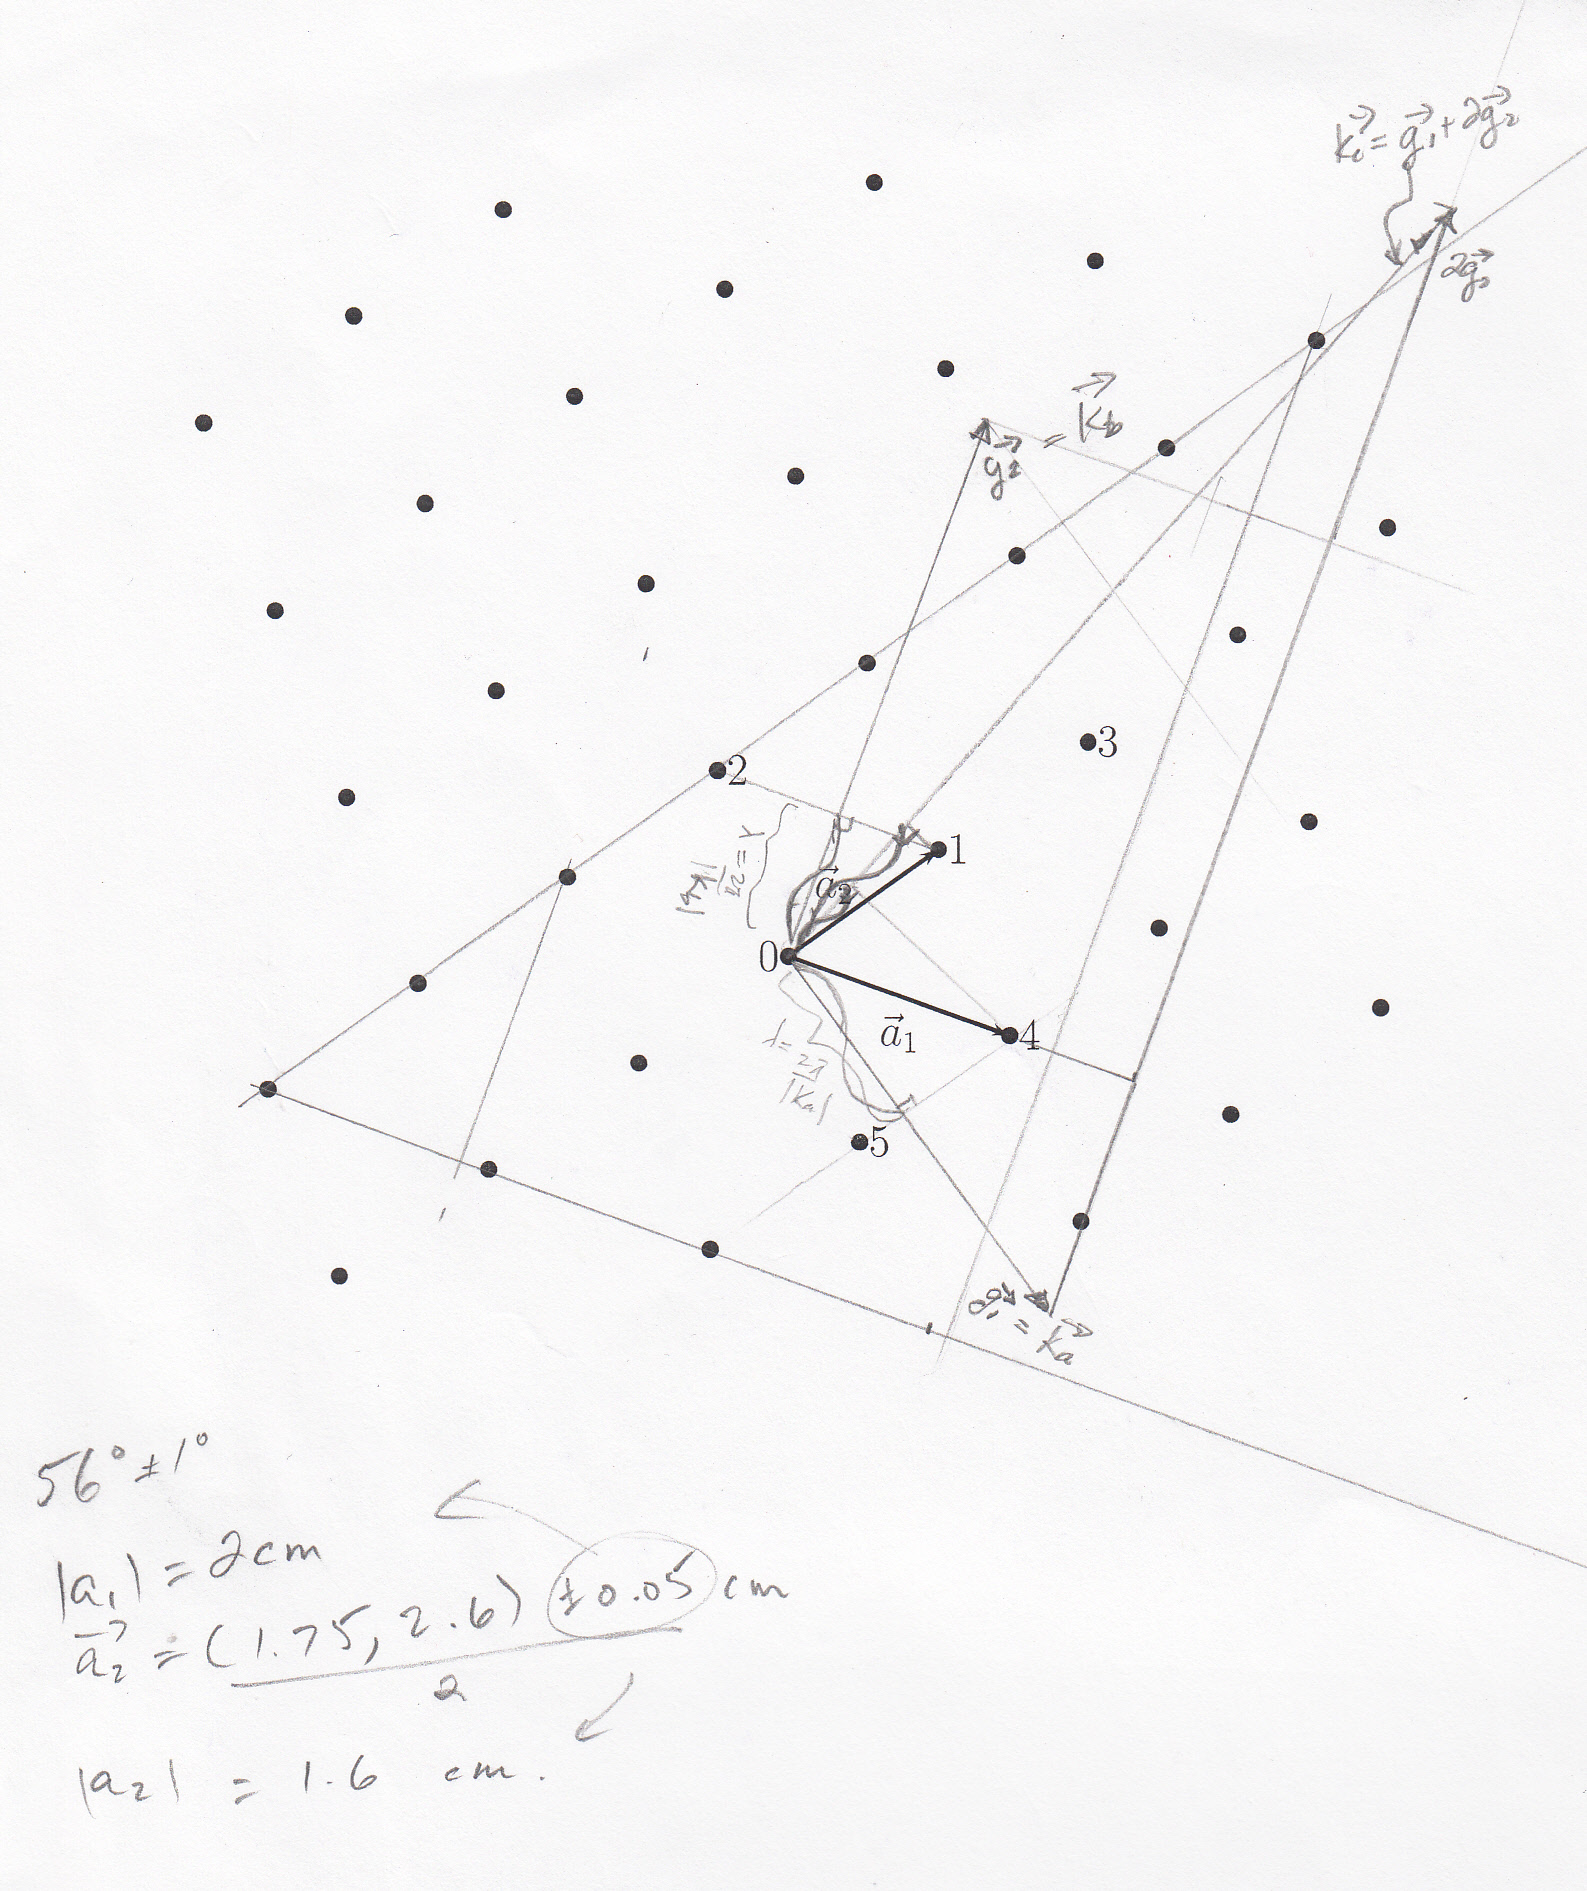 k⃗c = g⃗1 + 2g⃗2
2g⃗2
g⃗2 = k⃗b
3
2
λ = 2π/|kb|
1
a⃗2
0
a⃗1
4
λ = 2π/|ka|
5
g⃗1 = k⃗a
56° ± 1°
|a1| = 2 cm
a⃗2 = (1.75, 2.6) ± 0.05 cm
2
|a2| = 1.6 cm.